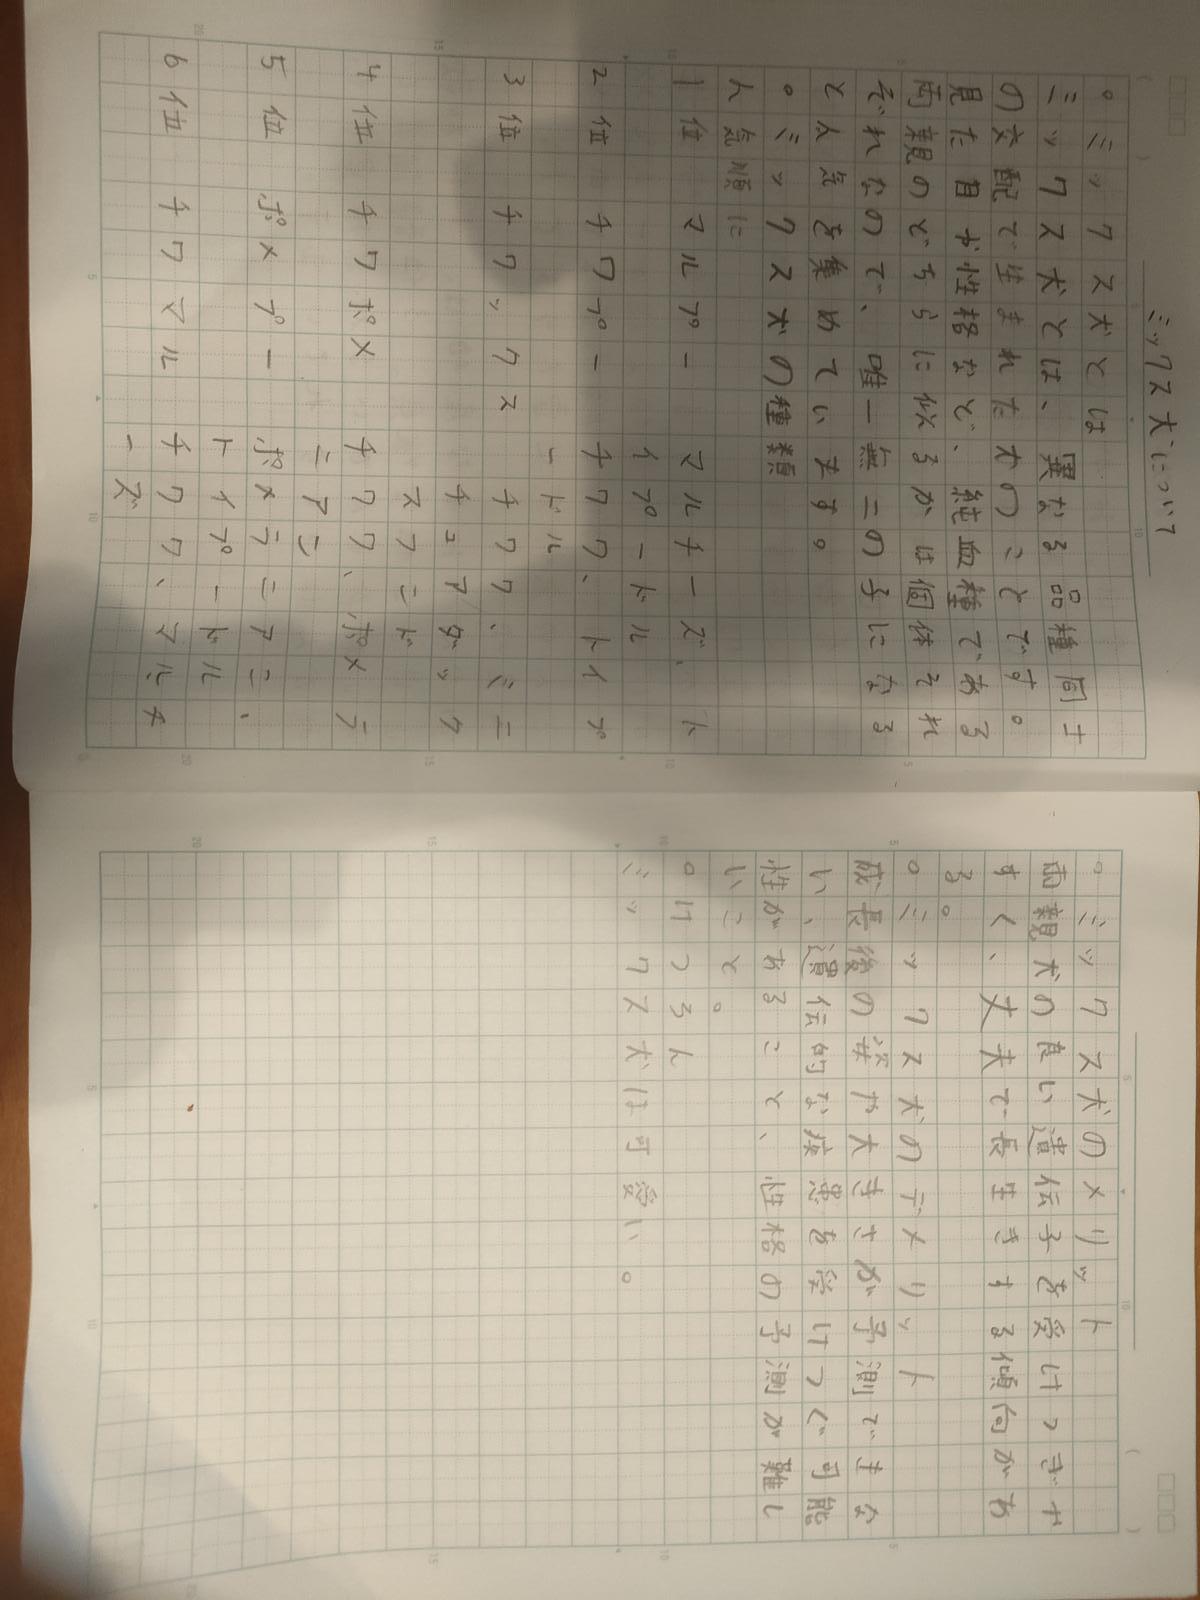 ミックス犬について
。ミックス犬とは
ミックス犬とは、異なる品種同士
の交配で生まれた犬のことです。
見た目や性格など、純血種である
両親のどちらに似るかは個体それ
ぞれなので、唯一無二の子になる
と人気を集めています。
。ミックス犬の種類
人気順に
1位 マルプー マルチーズ、ト
イプードル
2位 チワプー チワワ、トイプ
ードル
3位 チワックス チワワ、ミニ
チュアダック
スフンド
4位 チワポメ チワワ、ポメラ
ニアン
5位 ポメプー ポメラニアン、
トイプードル
6位 チワマル チワワ、マルチ
ーズ
。ミックス犬のメリット
両親犬の良い遺伝子を受けつぎや
すく、丈夫で長生きする傾向があ
る。
。ミックス犬のデメリット
成長後の姿や大きさが予測できな
い、遺伝的な疾患を受けつぐ可能
性があること、性格の予測が難し
いこと。
。けつろん
ミックス犬は可愛い。